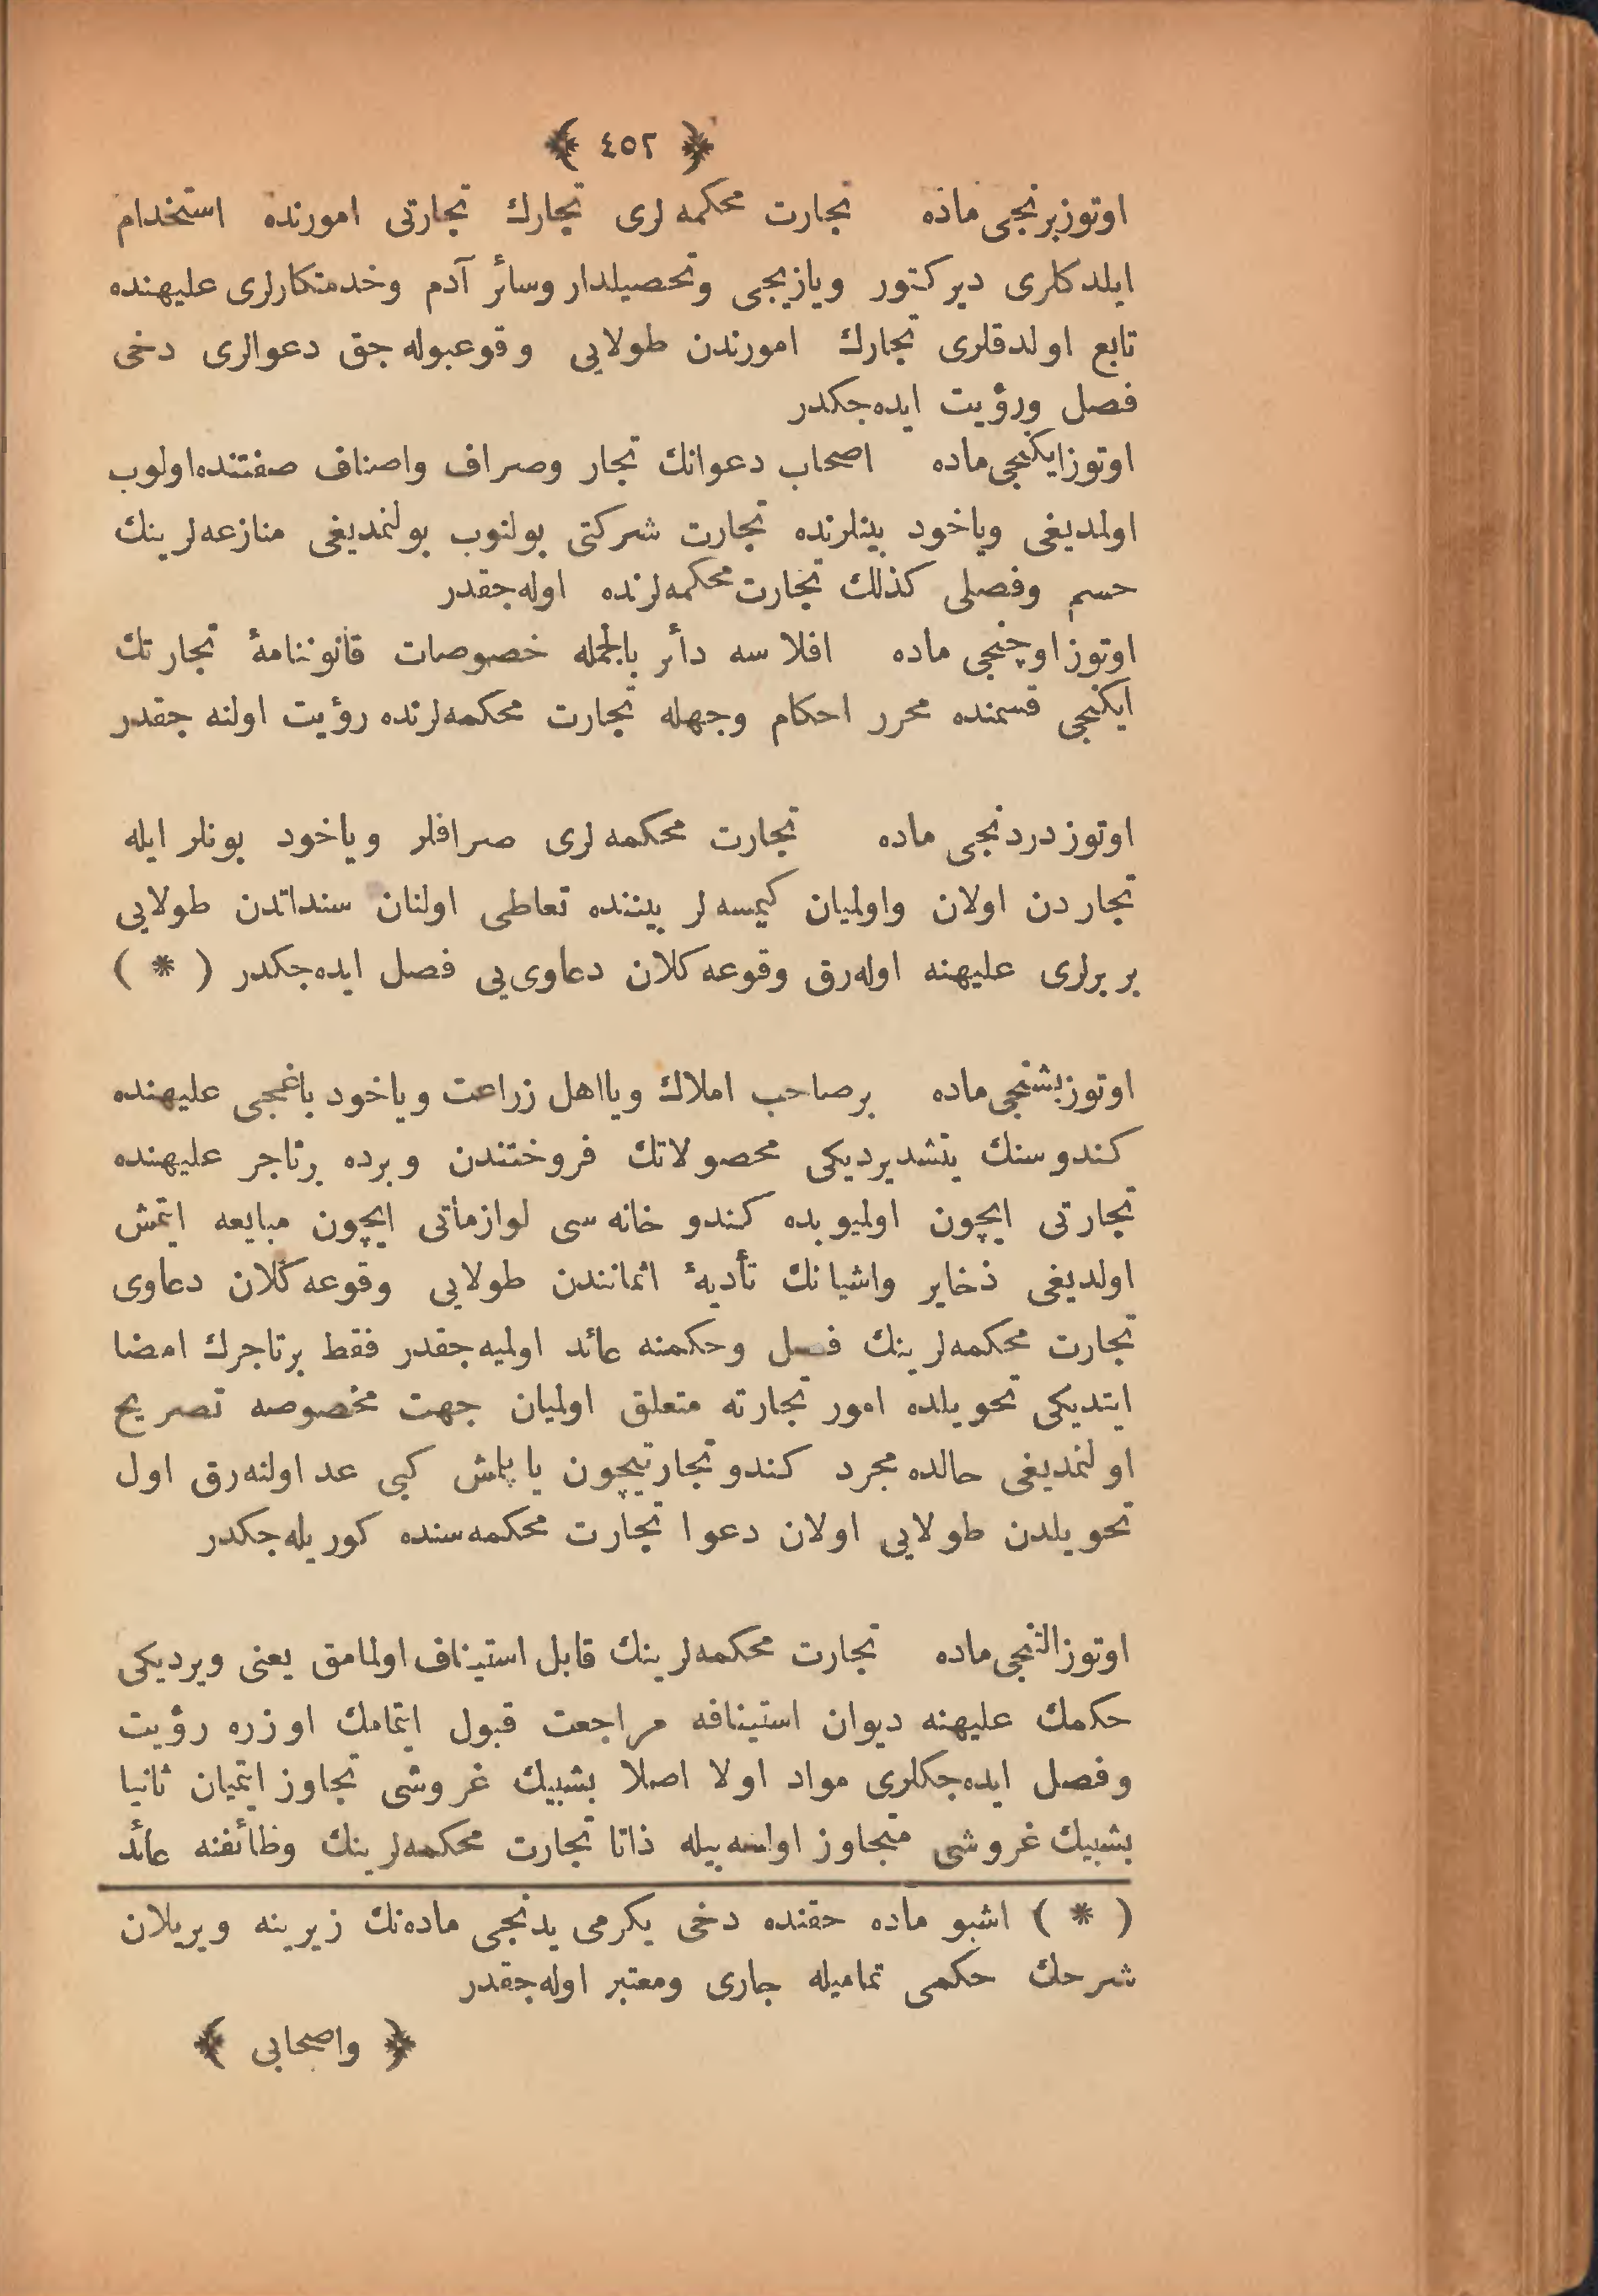 ﴿ ٤٥٢ ﴾
اوتوز برنجی ماده تجارت محكمه لری تجارك تجارتی امورنده استخدام
ایلدكلری دیركتور ویازیجی وتحصیلدار وسائر آدم وخدمتكارلری علیهنده
تابع اولدقلری تجارك امورندن طولایی وقوعبوله جق دعوالری دخی
فصل ورؤیت ایده جكدر
اوتوز ایكنجی ماده اصحاب دعوانك تجار وصراف واصناف صفتنده اولوب
اولمدیغی ویاخود بینلرنده تجارت شركتی بولنوب بولنمدیغی منازعه لرینك
حسم وفصلی كذلك تجارت محكمه لرنده اوله جقدر
اوتوز اوچنجی ماده افلاسه دائر بالجمله خصوصات قانوننامۀ تجارتك
ایكنجی قسمنده محرر احكام وجهله تجارت محكمه لرنده رؤیت اولنه جقدر
اوتوز دردنجی ماده تجارت محكمه لری صرافلر ویاخود بونلر ایله
تجاردن اولان واولمیان كیمسه لر بیننده تعاطی اولنان سنداتدن طولایی
بربرلری علیهنه اوله رق وقوعه كلان دعاوی یی فصل ایده جكدر ( * )
اوتوز بشنجی ماده برصاحب املاك ویا اهل زراعت ویاخود باغجی علیهنده
كندوسنك یتشدیردیكی محصولاتك فروختندن وبرده برتاجر علیهنده
تجارتی ایچون اولمیوبده كندو خانه سی لوازماتی ایچون مبایعه ایتمش
اولدیغی ذخایر واشیانك تأدیۀ اثمانندن طولایی وقوعه كلان دعاوی
تجارت محكمه لرینك فصل وحكمنه عائد اولمیه جقدر فقط برتاجرك امضا
ایتدیكی تحویلده امور تجارته متعلق اولمیان جهت مخصوصه تصریح
اولنمدیغی حالده مجرد كندو تجارتیچون یاپلمش كبی عد اولنه رق اول
تحویلدن طولایی اولان دعوا تجارت محكمه سنده كوریله جكدر
اوتوز التنجی ماده تجارت محكمه لرینك قابل استیناف اولمامق یعنی ویردیكی
حكمك علیهنه دیوان استینافه مراجعت قبول ایتمامك اوزره رؤیت
وفصل ایده جكلری مواد اولا اصلا بشبیك غروشی تجاوز ایتمیان ثانیا
بشبیك غروشی متجاوز اولسه بیله ذاتا تجارت محكمه لرینك وظائفنه عائد
( * ) اشبو ماده حقنده دخی یكرمی یدنجی ماده نك زیرینه ویریلان
شرحك حكمی تمامیله جاری ومعتبر اوله جقدر
﴿ واصحابی ﴾